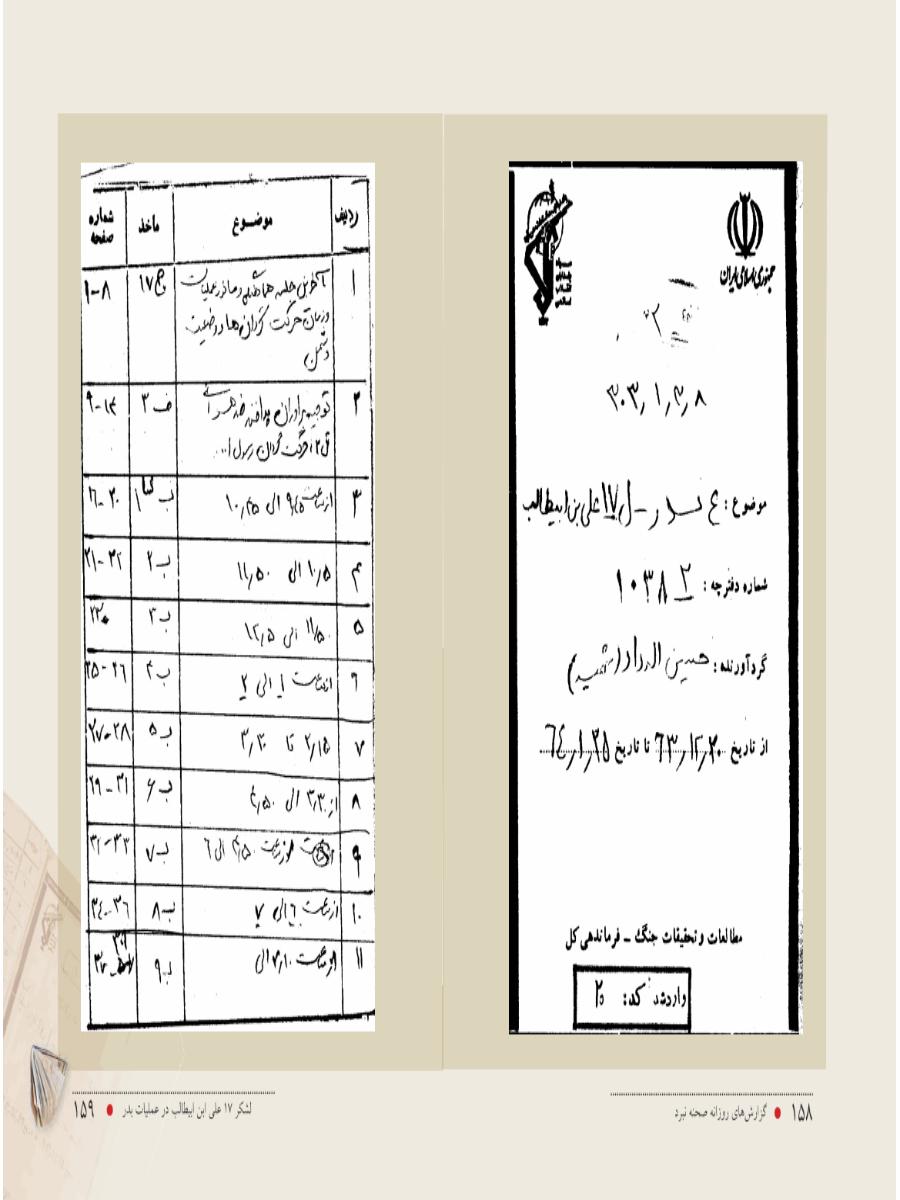 جمهوری اسلامی ایران
۳۰۳٫۱٫۳٫۸
موضوع: ع بدر - ل ۱۷ علی بن ابیطالب
شماره دفترچه: ۲ ۱۰۳۸
گردآورنده: حسین الداد (شهید)
از تاریخ ۶۳٫۱۲٫۲۰ تا تاریخ ۶۴٫۱٫۲۵
مطالعات و تحقیقات جنگ - فرماندهی کل
وارد شد کد: ۲۰
۱۵۸ ● گزارش‌های روزانه صحنه نبرد
ردیف موضوع ماخذ شماره صفحه
۱ آخرین جلسه هماهنگی و مانور عملیات ج ۱۷ ۱-۸
و زمان حرکت گردان‌ها و وضعیت
دشمن
۲ توجیه برادران پدافند ضد هوائی ف ۳ ۹-۱۴
ل ۱۷، حرکت گردان رسول ا...
۳ از ساعت ۹٫۵ الی ۱۰٫۴۵ ۱۶-۲۰
۴ ۱۰٫۵ الی ۱۱٫۵۰ ب ۲ ۲۱-۲۲
۵ ۱۱٫۵۰ الی ۱۲٫۵ ب ۳
۶ از ساعت ۱ الی ۲ ب ۴ ۲۵-۲۶
۷ ۲٫۱۵ تا ۳٫۲۰ ب ۵ ۲۷-۲۸
۸ از ۳٫۳۰ الی ۴٫۵۰ ب ۶ ۲۹-۳۱
۹ ساعت ۴٫۵۰ الی ۶ ب ۷ ۳۲-۳۳
۱۰ از ساعت ۶ الی ۷ ب ۸ ۳۴-۳۶
۱۱ ساعت ۷٫۱۰ الی ب ۹
لشکر ۱۷ علی ابن ابیطالب در عملیات بدر ● ۱۵۹